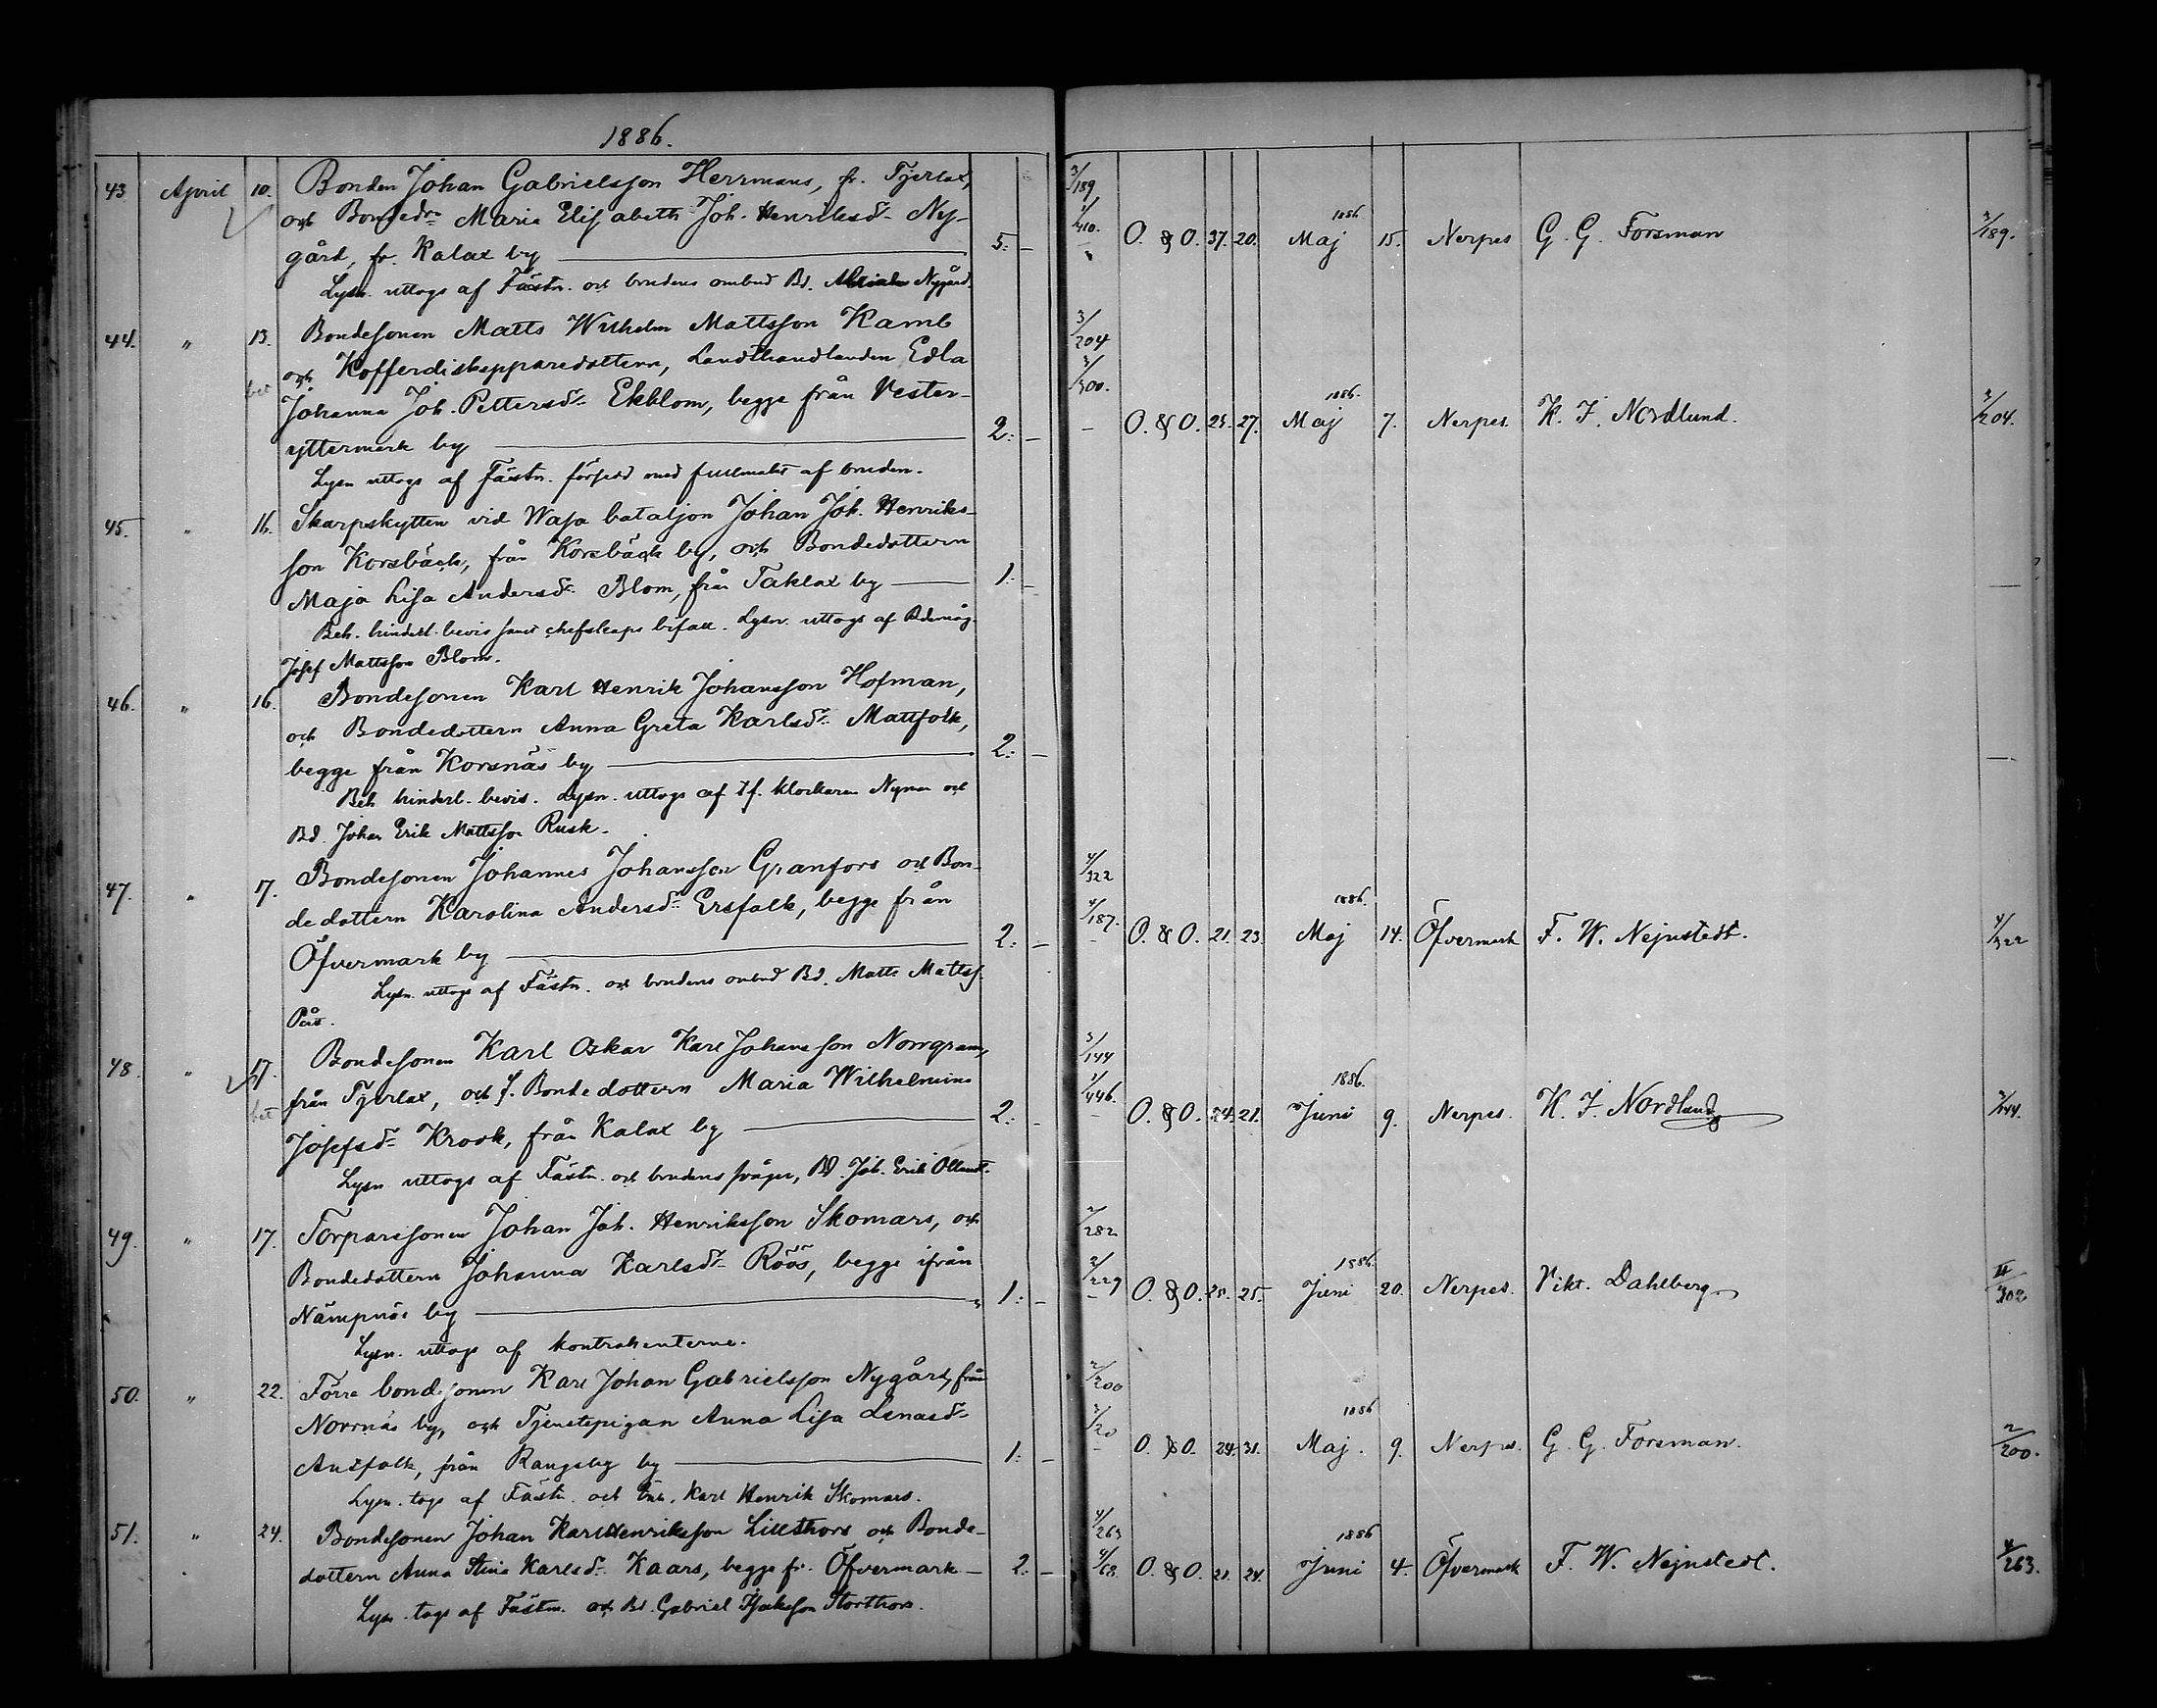 1886.
43 April 10. Bonden Johan Gabrielsson Herrmans, fr. Tjerlax,
och Bondedr Maria Elisabeth Joh. Henriksdr Ny-
gård, fr. Kalax by 5: –
Lysn. uttogs af Fästm. och brudens ombud Bd. Nygård.
3/189 3/410. O. & O. 37. 20. 1886 Maj 15. Nerpes G. G. Forsman 3/189.
44. " 13. Bondesonen Matts Wilhelm Mattsson Kamb
och Kofferdiskepparedottern, Landthandlanden Edla
Johanna Joh. Pettersdr Ekblom, begge från Vester-
yttermark by 2: –
Lysn uttogs af Fästm. försedd med fullmakt af bruden.
3/204 3/300. – O. & O. 25. 27. 1886. Maj 7. Nerpes. K. J. Nordlund. 3/204.
45. " 16. Skarpskytten vid Wasa bataljon Johan Joh. Henriks-
son Korsbäck, från Korsbäck by, och Bondedottern
Maja Lisa Andersdr Blom, från Taklax by 1: –
Beh. hinderl. bevis samt chefskaps bifall. Lysn. uttogs af
Josef Mattsson Blom.
46. " 16. Bondesonen Karl Henrik Johansson Hofman,
och Bondedottern Anna Greta Karlsdr Mattfolk,
begge från Korsnäs by 2: –
Beh hinderl. bevis. Lysn. uttogs af tf. klockaren Nyman och
Bd. Johan Erik Mattsson Rusk.
47. " 17. Bondesonen Johannes Johansson Granfors och Bon-
dedottern Karolina Andersdr Ersfolk, begge från
Öfvermark by 2: –
Lysn. uttogs af Fästm. och brudens ombud Bd. Matts Mattss.
Pärs.
4/322 4/187. – O. & O. 21. 23. 1886. Maj 14. Öfvermark F. W. Nejnstedt. 4/322
48. " 17. Bondesonen Karl Oskar Karl Johansson Norrgran,
från Tjerlax, och f. Bondedottern Maria Wilhelmina
Josefsdr Krook, från Kalax by 2: –
Lysn uttogs af Fästm. och brudens svåger, Bd. Joh. Erik
3/144 3/446. – O. & O. 24. 21. 1886. Juni 9. Nerpes. K. J. Nordlund 3/144.
49. " 17. Torparesonen Johan Joh. Henriksson Skomars, och
Bondedottern Johanna Karlsdr Röös, begge ifrån
Nämpnäs by 1: –
Lysn. uttogs af kontrahenterne.
2/282 2/229 – O. & O. 25. 1886. Juni 20. Nerpes. Vikt. Dahlberg II/302
50. " 22. Förre bondesonen Karl Johan Gabrielsson Nygård, från
Norrnäs by, och Tjenstepigan Anna Lisa Lenasdr
Antfolk, från Rangsby by 1: –
Lysn. togs af Fästm. och Karl Henrik Skomars.
2/200 3/20 – O. & O. 24. 31. 1886 Maj. 9. Nerpes. G. G. Forsman. 2/200.
51. " 24. Bondesonen Johan Karl Henriksson Lillthors och Bonde-
dottern Anna Stina Karlsdr Kaars, begge fr. Öfvermark 2: –
Lysn. togs af Fästm. och Bd. Gabriel Isaksson Storthors.
4/263 4/68. O. & O. 21. 24. 1886 Juni 4. Öfvermark F. W. Nejnstedt. 4/263.